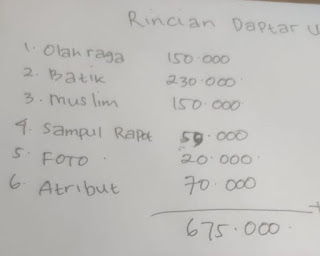 Rincian Daptar U
1. Olahraga 150.000
2. Batik 230.000
3. Muslim 150.000
4. Sampul Rapot
5. FOTO 20.000
6. Atribut 70.000
+
675.000